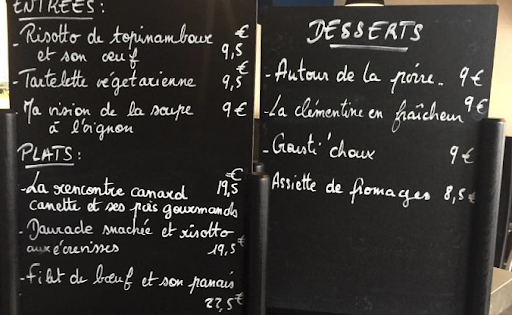 ENTRÉES:
- Risotto de topinambour €
et son œuf 9,5
- Tartelette végétarienne 9,5 €
- Ma vision de la soupe 9 €
à l'oignon
PLATS:
- La rencontre canard 19,5 €
canette et ses petits gourmands
- Daurade snackée et risotto
aux écrevisses 19,5 €
- Filet de bœuf et son panais
22,5 €
DESSERTS
- Autour de la poire.. 9 €
- La clémentine en fraîcheur 9 €
- Gousti'choux 9 €
- Assiette de fromages 8,5 €